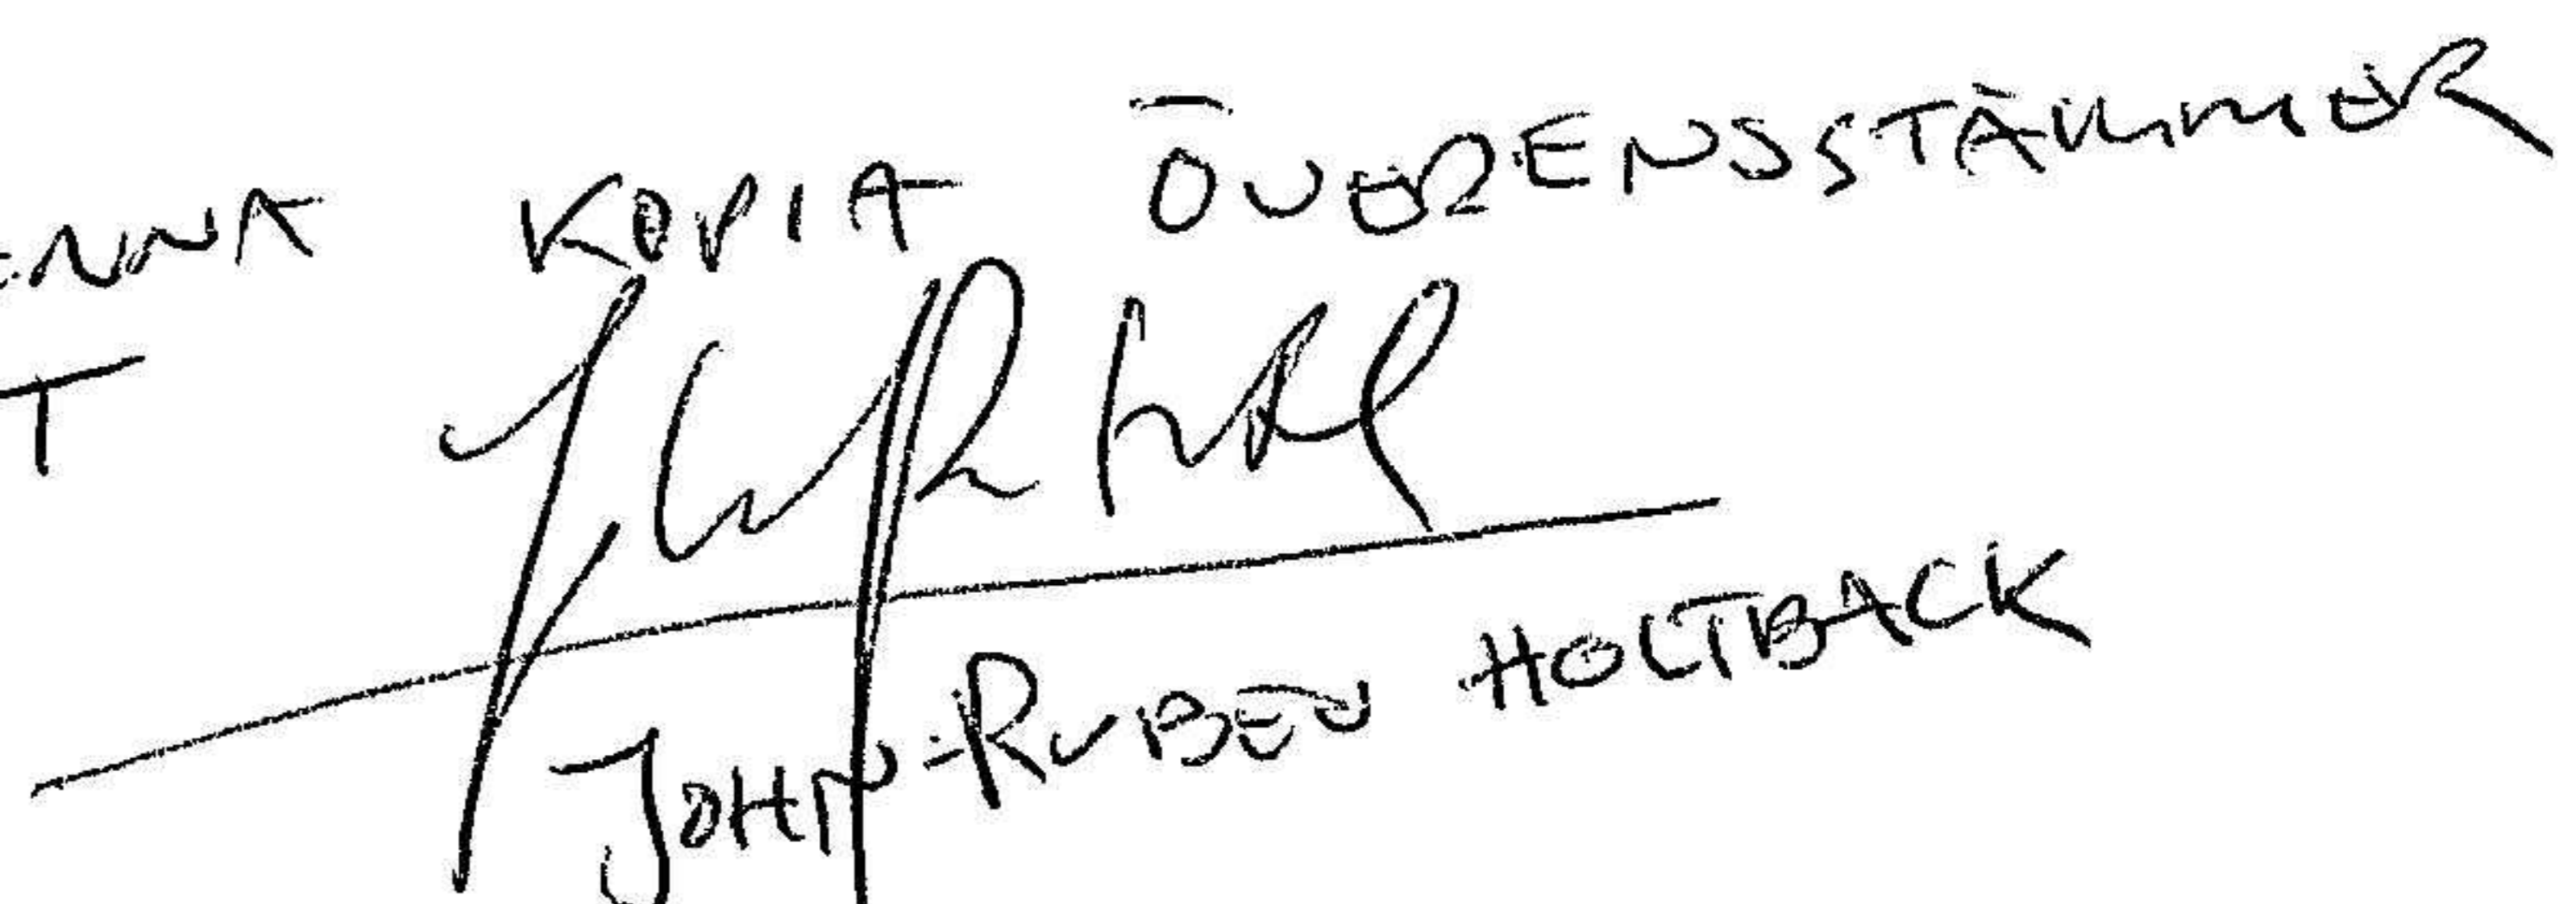 ENNA KOPIA ÖVERENSSTÄMMER
T
JOHN-RUBEN HOLTBACK